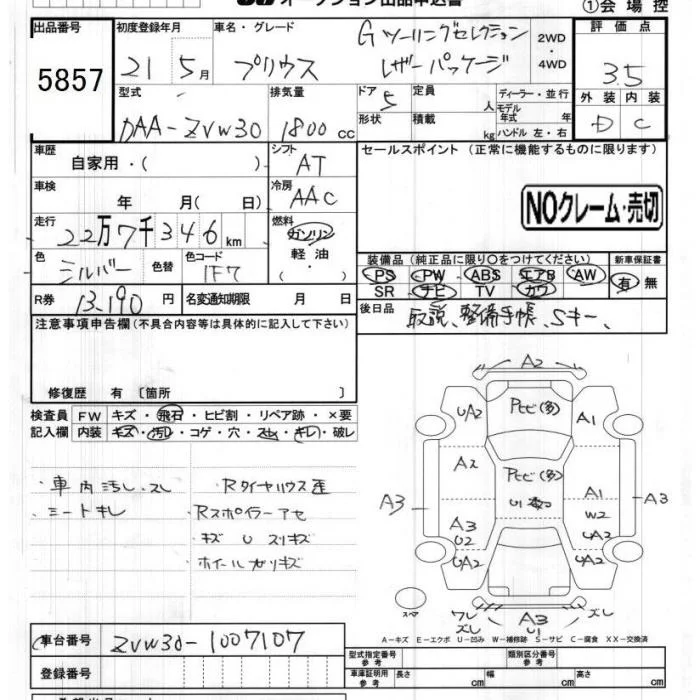 オークション出品申込書
①会場控
出品番号 初度登録年月 車名・グレード 評価点
5857 21 5月 プリウス Gツーリングセレクション レザーパッケージ 2WD・4WD 3.5
型式 排気量 ドア 定員 ディーラー・並行 外装 内装
DAA-ZVW30 1800 cc 5 人 モデル年式 年 D C
形状 積載 kg ハンドル 左・右
車歴 シフト セールスポイント (正常に機能するものに限ります)
自家用・( ) AT
車検 冷房
年 月( 日) AAC
NOクレーム・売切
走行 燃料
22万7千346km ガソリン
軽油・
色 色替 色コード
シルバー 1F7
装備品 (純正品に限り○をつけてください) 新車保証書
PS PW ABS エアB AW 有 無
SR ナビ TV カワ
R券 13,190 円 名変通知期限 月 日
後日品 取説、整備手帳、Sキー、
注意事項申告欄(不具合内容等は具体的に記入して下さい)
修復歴 有 [箇所 ]
検査員 FW キズ・飛石・ヒビ割・リペア跡・×要
記入欄 内装 キズ・汚レ・コゲ・穴・スレ・キレ・破レ
・車内汚レ、スレ ・Rタイヤハウス
・シートキレ ・Rスポイラーアセ
・キズ U スリキズ
ホイールガリキズ
A2
UA2 Pヒビ(多) A1
A2 Pヒビ(多)
A3 A1 A3
W2
A3
U2 UA2
UA2 UA2
スペア
ワレ ズレ A3 U1 ズレ
A-キズ E-エクボ U-凹み W-補修跡 S-サビ C-腐食 XX-交換済
車台番号 ZVW30-1007107
型式指定番号 参考 類別区分番号 参考
登録番号
車庫証明用 参考 長さ cm 幅 cm 高さ cm